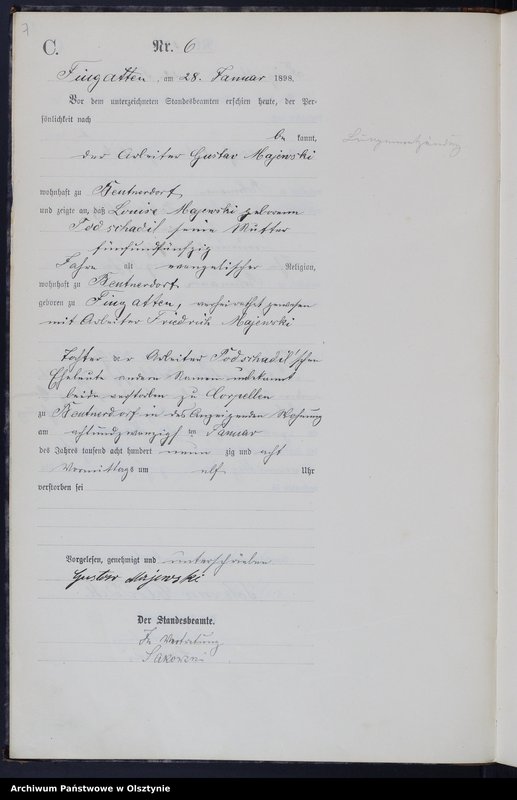 7
C.
Nr. 6
Fingatten, am 28. Januar 1898.
Vor dem unterzeichneten Standesbeamten erschien heute, der Per-
sönlichkeit nach
be kannt,
Lungenentzündung
der Arbeiter Gustav Majewski
wohnhaft zu Beutnerdorf
und zeigte an, daß Louise Majewski geborene
seine Mutter
fünfundfünfzig
Jahre alt evangelischer Religion,
wohnhaft zu Beutnerdorf
geboren zu Fingatten, verheirathet gewesen
mit Arbeiter Friedrich Majewski
Tochter der Arbeiter
Eheleute andere Namen unbekannt
beide verstorben zu Corpellen
zu Beutnerdorf in des Anzeigenden Wohnung
am achtundzwanzigsten Januar
des Jahres tausend acht hundert neun zig und acht
Vormittags um elf Uhr
verstorben sei
Vorgelesen, genehmigt und unterschrieben
Gustav Majewski
Der Standesbeamte.
In Vertretung
Archiwum Państwowe w Olsztynie